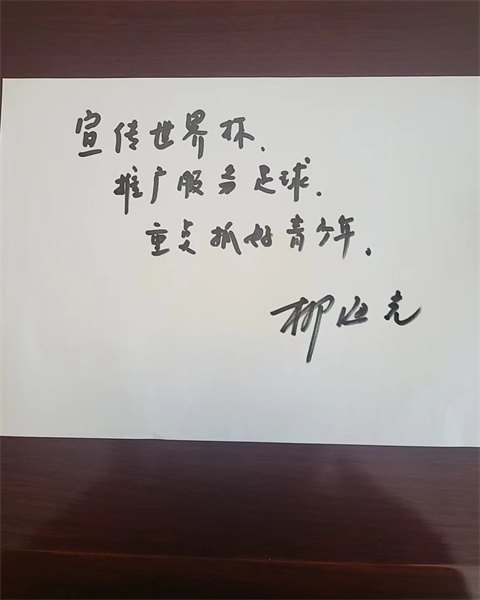 宣传世界杯、
推广服务足球、
重点抓好青少年。
柳延亮